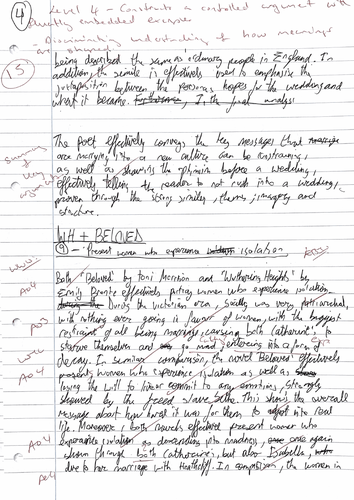 4
Level 4 - Constructs a controlled argument with
fluently embedded examples
Discriminating understanding of how meanings
are shaped
15
being described the same as ordinary people in England. In
addition, the simile is effectively used to emphasise the
juxtaposition between the persona's hopes for the wedding and
what it became. I, the final analysis
The poet effectively conveys the key messages that
are marrying into a new culture can be constraining,
as well as showing the optimism before a wedding,
effectively telling the reader to not rush into a wedding,
proven through the strong similes, themes, imagery and
structure.
Summary
of
key
arguments
WH + BELOVED
9 - Present women who experience isolation
Both 'Beloved' by Toni Morrison and 'Wuthering Heights' by
Emily Bronte effectively portray women who experience isolation.
During the Victorian era, society was very patriarchal,
with nothing ever going in favour of women, with the biggest
restraint of all being marriage, causing both Catherine's to
starve themselves and go mad, entering into a form of
decay. In similar comparison, the novel Beloved effectively
presents women who experience isolation as well as
losing the will to live or commit to any emotions, strongly
showed by the freed slave Sethe. This shows the overall
message about how hard it was for them to adjust into real
life. Moreover, both novels effectively present women who
experience isolation as descending into madness, once again
shown through both Catherine's, but also Isabella,
due to her marriage with Heathcliff. In comparison, the women in
AO4
AO3
AO4
AO4
AO4